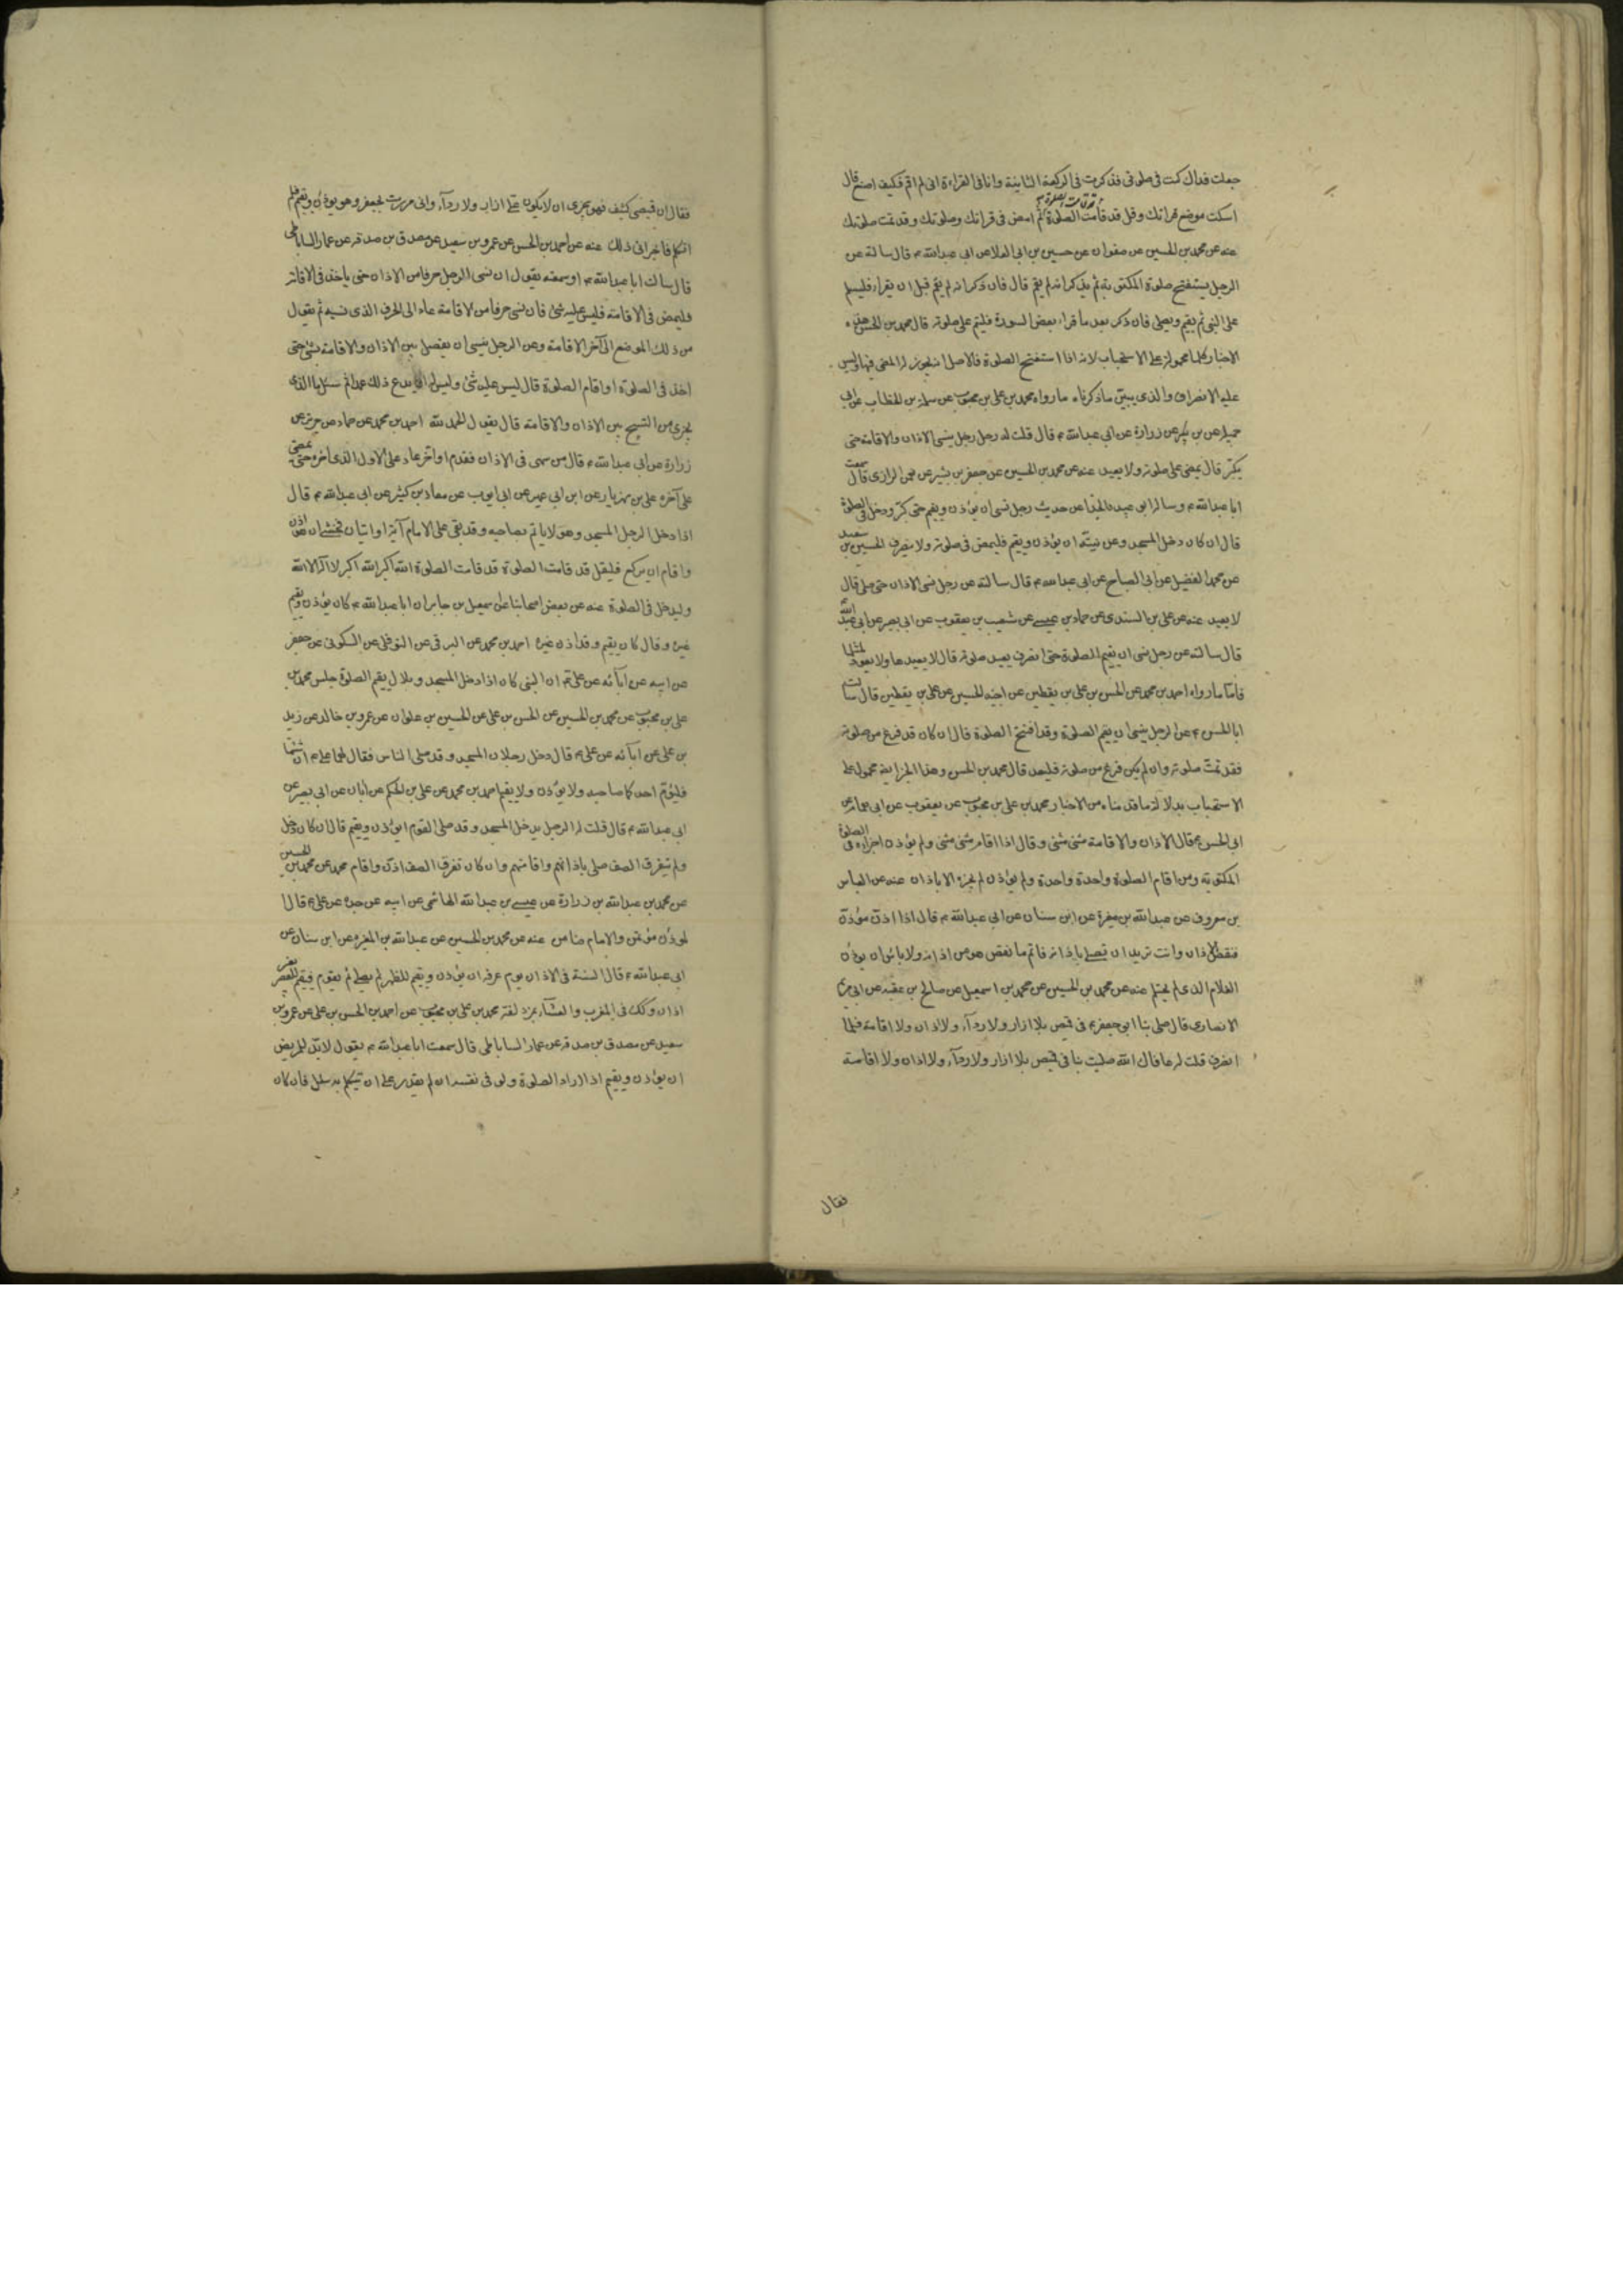 جعلت فداك كنت فى صلوتى فذكرت فى الركعة الثانية وانا فى القراءة انى لم اقم فكيف اصنع قال
اسكت موضع قرائتك وقل قد قامت الصلوة قد قامت الصلوة ثم امض فى قرائتك وصلوتك وقد تمت صلوتك
عنه عن محمد بن الحسين عن صفوان عن حسين بن ابى العلا عن ابى عبد الله ع قال سالته عن
الرجل يستفتح صلوة المكتوبة ثم يذكر انه لم يقم قال فان ذكر انه لم يقم قبل ان يقراء فليسلم
على النبى ثم يقيم ويصلى فان ذكر بعد ما قراء بعض السورة فليتم على صلوته قال محمد بن الحسن هذه
الاخبار كلها محمولة على الاستحباب لانه اذا استفتح الصلوة فالاصل انه يجوز له المضى فيها وليس
عليه الانصراف والذى يبين ما ذكرناه ما رواه محمد بن على بن محبوب عن سلمة بن الخطاب عن ابى
جميلة عن بن بكير عن زرارة عن ابى عبد الله ع قال قلت له رجل ينسى الاذان والاقامة حتى
يكبر قال يمضى على صلوته ولا يعيد عنه عن محمد بن الحسين عن جعفر بن بشير عن نعمن الرازى قال سمعت
ابا عبد الله ع وساله ابو عبيدة الحذا عن حديث رجل نسى ان يؤذن ويقيم حتى كبر ودخل فى الصلوة
قال ان كان دخل المسجد وعن نيته ان يؤذن ويقيم فليمض فى صلوته ولا ينصرف الحسين بن سعيد
عن محمد الفضيل عن ابى الصباح عن ابى عبد الله ع قال سالته عن رجل نسى الاذان حتى صلى قال
لا يعيد عنه عن على بن السندى عن حماد بن عيسى عن شعيب بن يعقوب عن ابى بصير عن ابى عبد الله
قال سالته عن رجل نسى ان يقيم الصلوة حتى انصرف يعيد صلوته قال لا يعيدها ولا يعود لمثلها
فاما ما رواه احمد بن محمد عن الحسن بن على بن يقطين عن اخيه الحسين عن على بن يقطين قال سالت
ابا الحسن ع عن الرجل ينسى ان يقيم الصلوة وقد افتتح الصلوة قال ان كان قد فرغ من صلوته
فقد تمت صلوته وان لم يكن فرغ من صلوته فليعد قال محمد بن الحسن وهذا الخبر ايضا محمول على
الاستحباب بدلالة ما قدمناه من الاخبار محمد بن على بن محبوب عن يعقوب عن ابى همام عن
ابى الحسن ع قال الاذان والاقامة مثنى مثنى وقال اذا اقام مثنى مثنى ولم يؤذن اجزاه فى الصلوة
المكتوبه ومن اقام الصلوة واحدة واحدة ولم يؤذن لم يجزه الا باذان عنه عن العباس
بن معروف عن عبد الله بن مغيرة عن ابن سنان عن ابى عبد الله ع قال اذا اذن مؤذن
فنقص الاذان وانت تريد ان تصلى باذانه فاتم ما نقص هو من اذانه ولا باس ان يؤذن
الغلام الذى لم يحتلم عنه عن محمد بن الحسين عن محمد بن اسمعيل عن صالح بن عقبه عن ابى مريم
الانصارى قال صلى بنا ابو جعفر ع فى قميص بلا ازار ولا ردآء ولا اذان ولا اقامة فلما
انصرف قلت له عافاك الله صليت بنا فى قميص بلا ازار ولا ردآء ولا اذان ولا اقامة
فقال
فقال ان قميصى كثيف فهو يجزى ان لا يكون على ازار ولا ردآء وانى مررت بجعفر وهو يؤذن ويقيم فلم
اتكلم فاجزانى ذلك عنه عن احمد بن الحسن عن عمرو بن سعيد عن مصدق بن صدقه عن عمار الساباطى
قال سالت ابا عبد الله ع او سمعته يقول ان نسى الرجل حرفا من الاذان حتى ياخذ فى الاقامة
فليمض فى الاقامة فليس عليه شئ فان نسى حرفا من الاقامة عاد الى الحرف الذى نسيه ثم يقول
من ذلك الموضع الى آخر الاقامة وعن الرجل ينسى ان يفصل بين الاذان والاقامة بشئ حتى
اخذ فى الصلوة او اقام الصلوة قال ليس عليه شئ وليس له ان يدع ذلك عمدا ثم سئل ما الذى
يجزى من التسبيح بين الاذان والاقامة قال يقول الحمد لله احمد بن محمد عن حماد عن حريز عن
زرارة عن ابى عبد الله ع قال من سهى فى الاذان فقدم او اخر عاد على الاول الذى اخره حتى يمضى
على آخره على بن مهزيار عن ابن ابى عمير عن ابى ايوب عن معاذ بن كثير عن ابى عبد الله ع قال
اذا دخل الرجل المسجد وهو لا ياتم بصاحبه وقد بقى على الامام آية او ايتان فخشى ان هو اذن
واقام ان يركع فليقل قد قامت الصلوة قد قامت الصلوة الله اكبر الله اكبر لا اله الا الله
وليدخل فى الصلوة عنه عن بعض اصحابنا عن اسمعيل بن جابر ان ابا عبد الله ع كان يؤذن ويقيم
غيره وقال كان يقيم وقد اذن غيره احمد بن محمد عن البرقى عن النوفلى عن السكونى عن جعفر
عن ابيه عن آبائه عن على ع ان النبى كان اذا دخل المسجد وبلال يقيم الصلوة جلس محمد بن
على بن محبوب عن محمد بن الحسين عن الحسن بن على عن الحسين بن علوان عن عمرو بن خالد عن زيد
بن على عن آبائه عن على ع قال دخل رجلان المسجد وقد صلى الناس فقال لهما على ع ان شئتما
فليؤم احدكما صاحبه ولا يؤذن ولا يقيم احمد بن محمد عن على بن الحكم عن ابان عن ابى بصير عن
ابى عبد الله ع قال قلت له الرجل يدخل المسجد وقد صلى القوم ايؤذن ويقيم قال ان كان دخل
ولم يتفرق الصف صلى باذانهم واقامتهم وان كان تفرق الصف اذن واقام محمد عن محمد بن الحسين
عن محمد بن عبد الله بن زرارة عن عيسى بن عبد الله الهاشمى عن ابيه عن جده عن على ع قال ا
لمؤذن مؤتمن والامام ضامن عنه عن محمد بن الحسين عن عبد الله بن المغيره عن ابن سنان عن
ابى عبد الله ع قال السنة فى الاذان يوم عرفه ان يؤذن ويقيم للظهر ثم يصلى ثم يقوم فيقيم للعصر بغير
اذان وكذلك فى المغرب والعشآء بمزدلفة محمد بن على بن محبوب عن احمد بن الحسن بن على عن عمرو بن
سعيد عن مصدق بن صدقه عن عمار الساباطى قال سمعت ابا عبد الله ع يقول لابد للمريض
ان يؤذن ويقيم اذا اراد الصلوة ولو فى نفسه ان لم يقدر على ان يتكلم به سئل فان كان